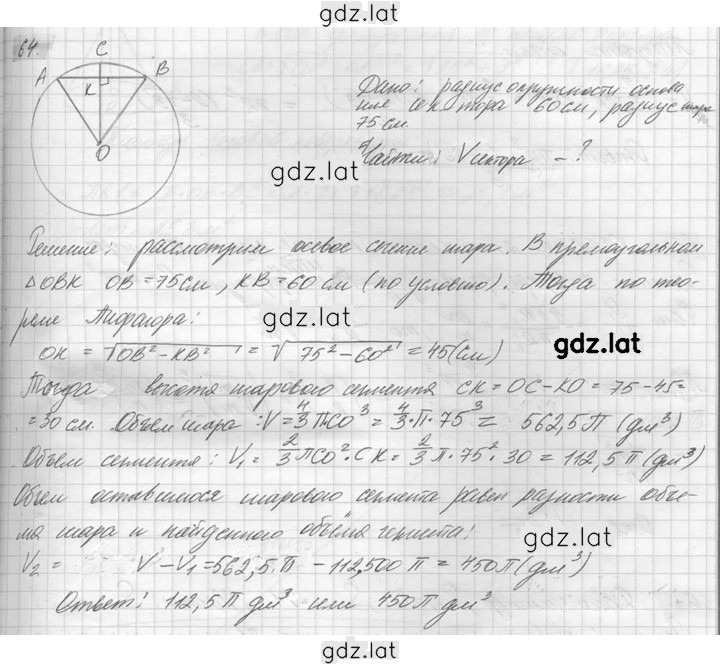 gdz.lat
64.
C
A
B
K
O
Дано: радиус окружности основа
ние сектора 60 см, радиус шара
75 см.
Найти: Vсектора – ?
gdz.lat
Решение: рассмотрим осевое сечение шара. В прямоугольном
△OBK OB = 75 см, KB = 60 см (по условию). Тогда по тео-
реме Пифагора:
gdz.lat
OK = √OB² – KB² = √75² – 60² = 45 (см)
gdz.lat
Тогда высота шарового сегмента CK = OC – KO = 75 – 45 =
= 30 см. Объем шара: V = 4/3 ПCO³ = 4/3 · П · 75³ = 562,5 П (дм³)
Объем сегмента: V₁ = 2/3 ПCO² · CK = 2/3 П · 75² · 30 = 112,5 П (дм³)
Объем оставшегося шарового сегмента равен разности объе-
ма шара и найденного объёма сегмента:
gdz.lat
V₂ = V – V₁ = 562,5 · П – 112,500 П = 450 П (дм³)
Ответ: 112,5 П дм³ или 450 П дм³
gdz.lat